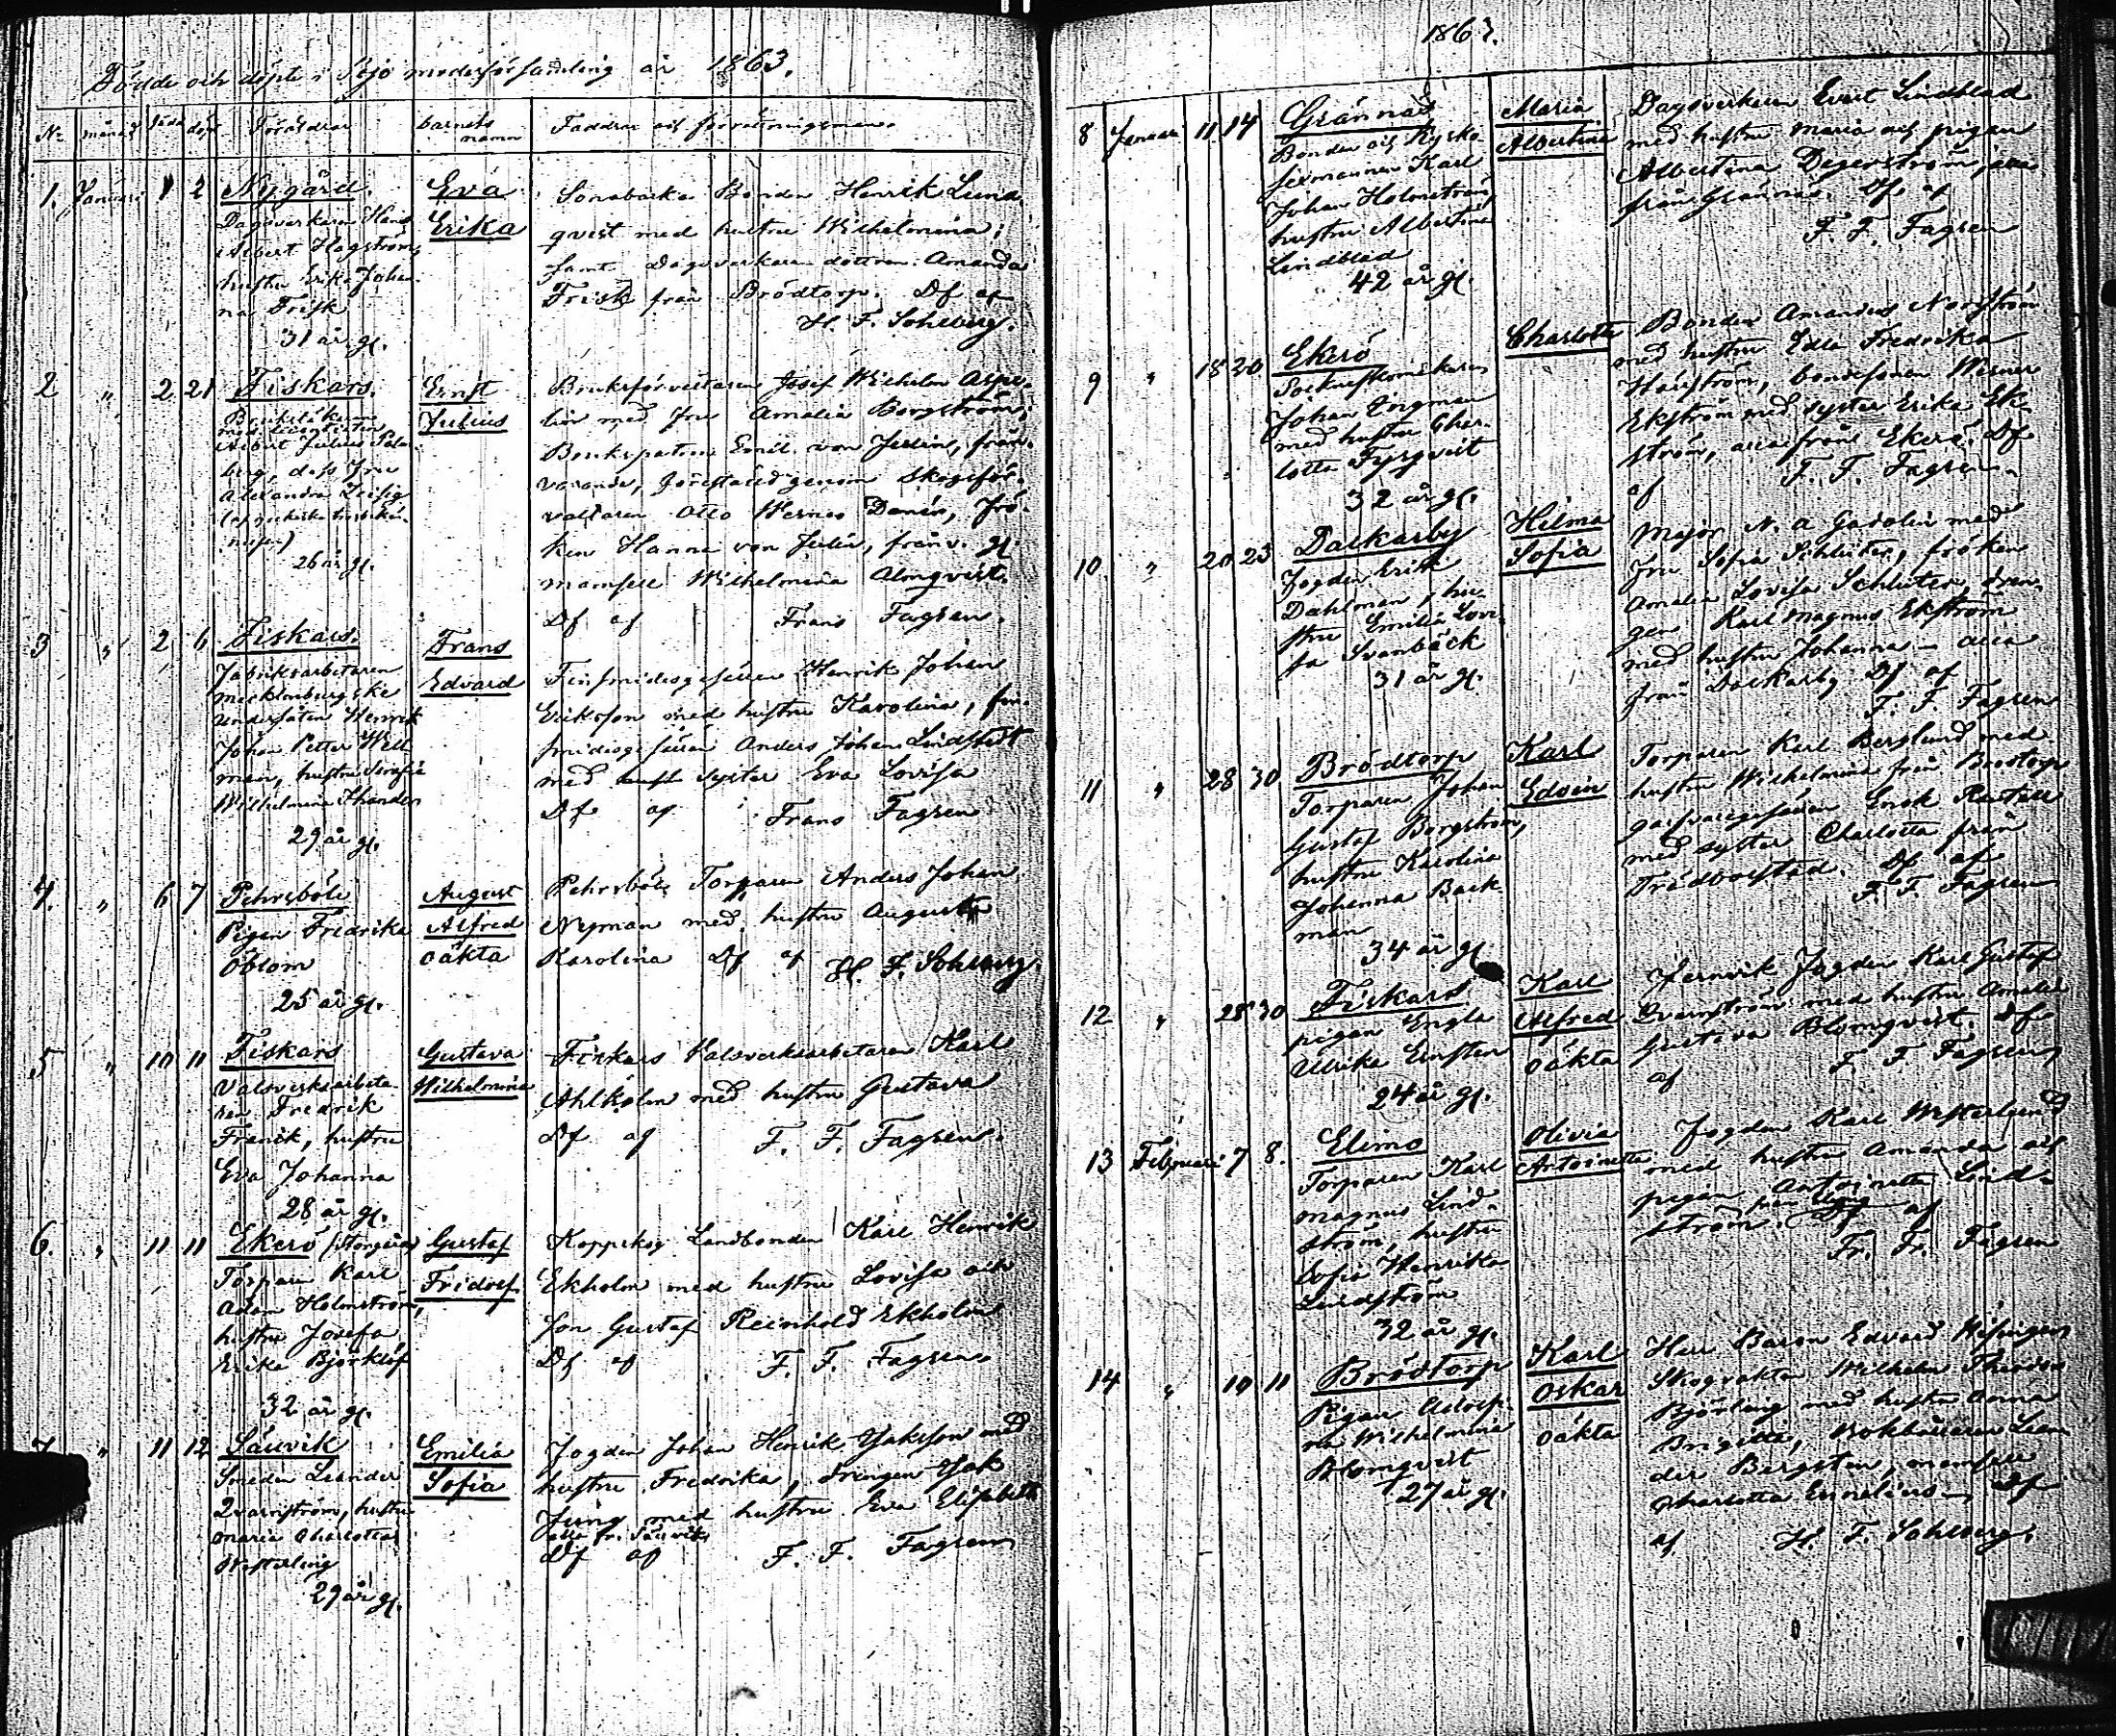 Födde och döpte i Pojo moderförsamling år 1863.
No månad föd. döpt Föräldrar barnets namn Faddrar och förrättningsman.
1. Januari 1 2 Nygård. Eva Erika
Dagsverkaren Hans
Albert Hagström,
hustru Erika Johan-
na Frisk
31 år gl.
Sonabacka Bonden Henrik Lind-
qvist med hustru Wilhelmina;
samt Dagsverkare dottren Amanda
Frisk från Brödtorp. Df af
H. F. Sohlberg.
2 " 2 21 Fiskars. Ernst Julius
Albert Julius
berg, dess fru
Alexandra
26 år gl.
Bruksförvaltaren Josef Wilhelm Aspe-
lin med fru Amalia Bergström;
Brukspatron Emil von Julin, från-
varande, föreställd genom Skogsför-
valtaren Otto Werner Danér, frö-
ken Hanna von Julin, frånv. gl.
mamsell Wilhelmina Almqvist.
Df af Frans Fagrén.
3 " 2 6 Fiskars. Frans Edvard
Fabriksarbetaren
mecklenburgske
undersåten Henrik
Johan Petter Well-
man, hustru Serafia
Wilhelmina
29 år gl.
Finsmidesgesällen Henrik Johan
Eriksson med hustru Karolina, fin-
smidesgesällen Anders Johan Lindstedt
med hust syster Eva Lovisa
Df af Frans Fagrén
4. " 6 7 Pehrsböle August Alfred oäkta
Pigan Fredrika
Oblom
25 år gl.
Pehrsböle Torparen Anders Johan
Nyman med hustru Augusta
Karolina Df af H. F. Sohlberg.
5 " 10 11 Fiskars Gustava Wilhelmina
Valsverksarbeta-
ren Fredrik
Franck, hustru
Eva Johanna
28 år gl.
Fiskars Valsverksarbetaren Karl
Ahlholm med hustru Gustava
Df af F. F. Fagrén.
6. " 11 11 Ekerö Gustaf Fridolf
Torparen Karl
Adam Holmström,
hustru Josefa
Erika Björklöf
32 år gl.
Koppskog Landbonden Karl Henrik
Ekholm med hustru Lovisa och
son Gustaf Reinhold Ekholm
Df af F. F. Fagrén.
7. " 11 12 Sällvik Emilia Sofia
Smeden Leander
Qvarnström, hustru
Maria Charlotta
Westerling
29 år gl.
Fogden Johan Henrik med
hustru Fredrika, drengen
Jung med hustru Eva Elisabeth
alla fr. Sällvik
Df af F. F. Fagrén
1863.
8 Januari 11 14 Grännäs Maria Albertina
Bonden och Kyrko-
sexmannen Karl
Johan Holmström,
hustru Albertina
Lindblad
42 år gl.
Dagsverkaren Evert Lindblad
med hustru Maria och pigan
Albertina Degerström, alla
från Grännäs. Df af
F. F. Fagrén
9 " 18 20 Ekerö Charlotta
Sockneskomakaren
Johan Engman
med hustru Char-
lotta Fyrqvist
32 år gl.
Bonden Amandus Norrström
med hustru Edla Fredrika
bondesonen Werner
Ekström med syster Erika Ek-
ström, alla från Ekerö. Df
af F. F. Fagrén.
10 " 20 23 Daskarby Hilma Sofia
Fogden Erik
Dahlman, hu-
stru Emilia Lovi-
sa Svanbäck
31 år gl.
Major N. A. Gadolin med
fru Sofia Schlüter, fröken
Amalia Lovisa Schlüter, dren-
gen Karl Magnus Ekström
med hustru Johanna – alla
från Daskarby Df af
F. F. Fagrén
11 " 28 30 Brödtorp Karl Edvin
Torparen Johan
Gustaf Bergström,
hustru Karolina
Johanna Back-
man
34 år gl.
Torparen Karl Berglund med
hustru Wilhelmina från Brödtorp
garfvaregesällen Erik
med syster Charlotta från
Df af
F. F. Fagrén
12 " 28 30 Fiskars Karl Alfred oäkta
pigan Engla
Ulrika Ernsten
24 år gl.
Jernvik Fogden Karl Gustaf
Qvarnström med hustru Amalia
Gustava Blomqvist. Df
af F. F. Fagrén
13 Februari 7 8. Elimo Olivia Antoinetta
Torparen Karl
Magnus Lind-
ström, hustru
Sofia Henrika
Lindström
32 år gl.
Fogden Karl Westerlund
med hustru Amanda och
pigan Antoinetta Lind-
ström. Df af
Fr. Fr. Fagrén
14 " 10 11 Brödtorp Karl Oskar oäkta
Pigan Adolfi-
na Wilhelmina
Blomqvist
27 år gl.
Herr Baron Edvard Hisinger,
Skogvakten Wilhelm Theodor
Björling med hustru Anna
Brigitta, Bokhållaren Lean-
der Bergsten, mamsell
Charlotta Df
af H. F. Sohlberg.